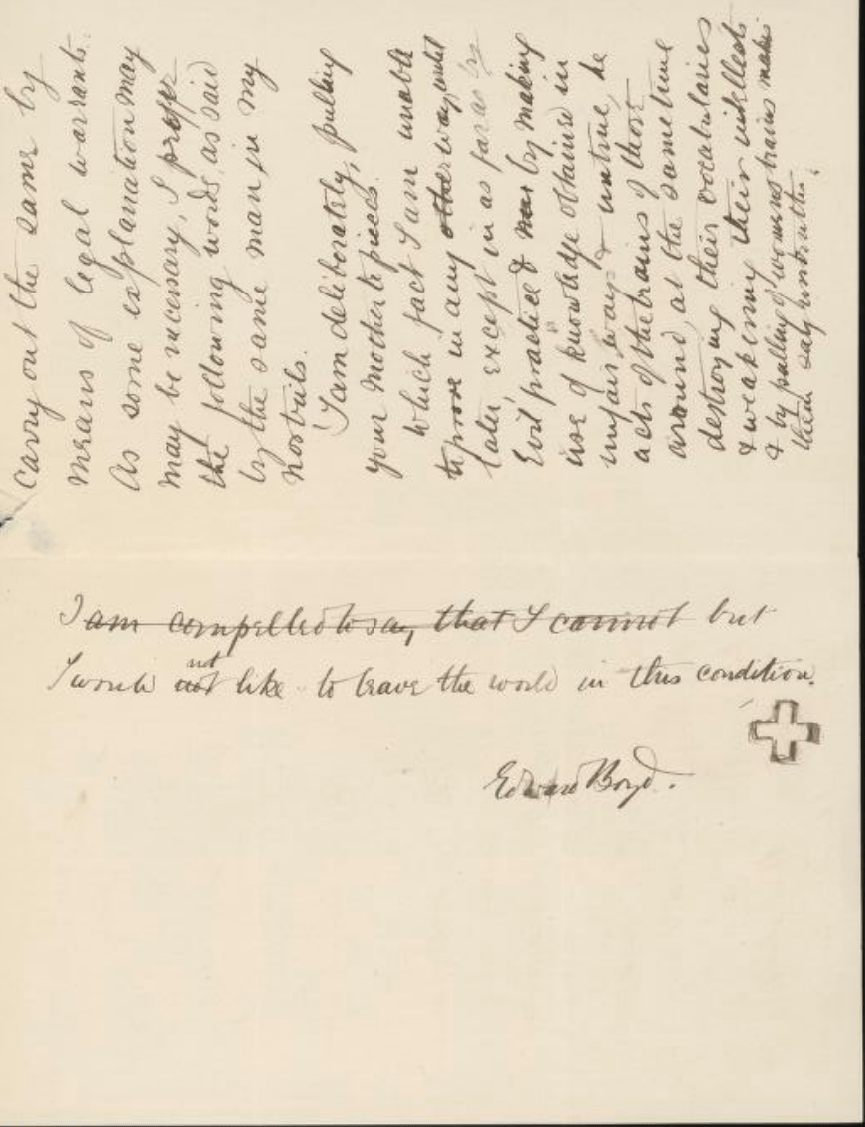 carry out the same by
means of legal warrants.
As some explanation may
may be necessary, I proffer
the following words, as said
by the same man in my
nostrils.
"I am deliberately, pulling
your mother to pieces.
Which fact I am unable
to prove in any other way, until
later, except in as far as by
Evil practice & by making
use of knowledge obtained in
unfair ways & untrue, he
acts of the brains of those
around, at the same time
destroying their vocabularies
& weakening their intellects
& by pulling of womens brains makes
them say
I am compelled to say, that I cannot but
I would not like to leave the world in this condition.
Edward Boyd.